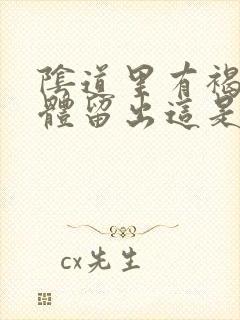 陰道里有褐
體留出這是
cx先生